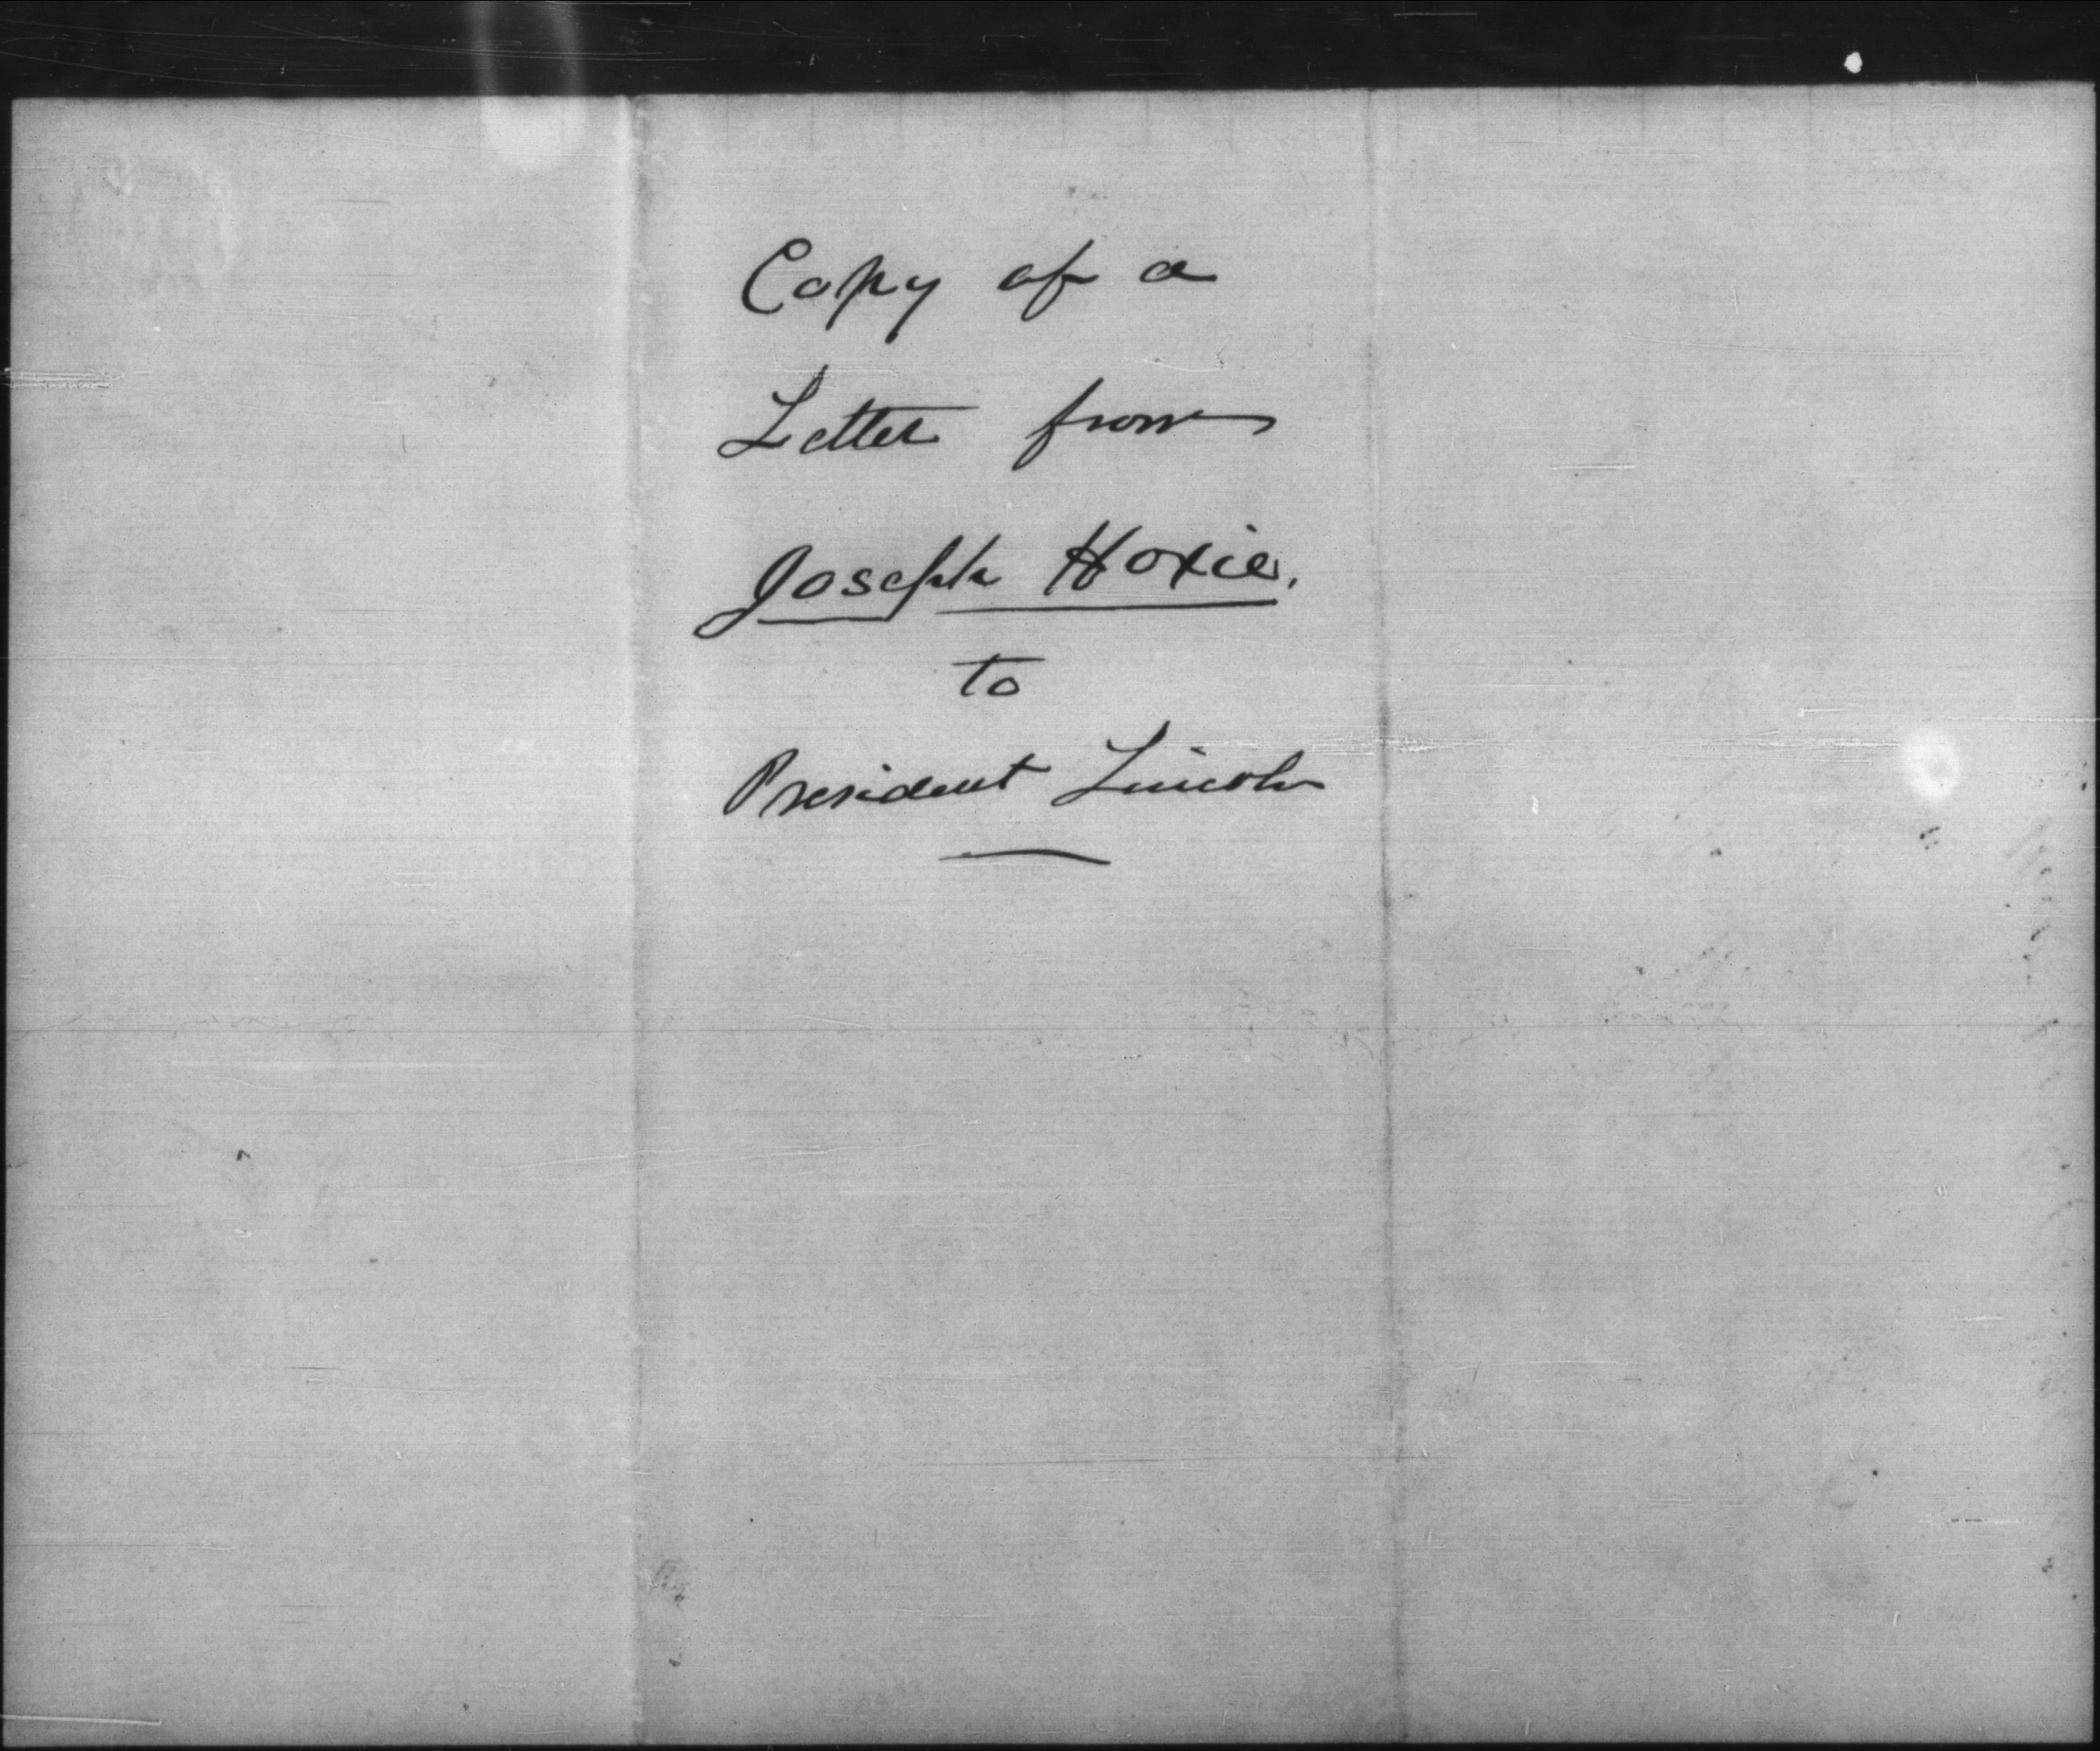 Copy of a
Letter from
Joseph Hoxie.
to
President Lincoln